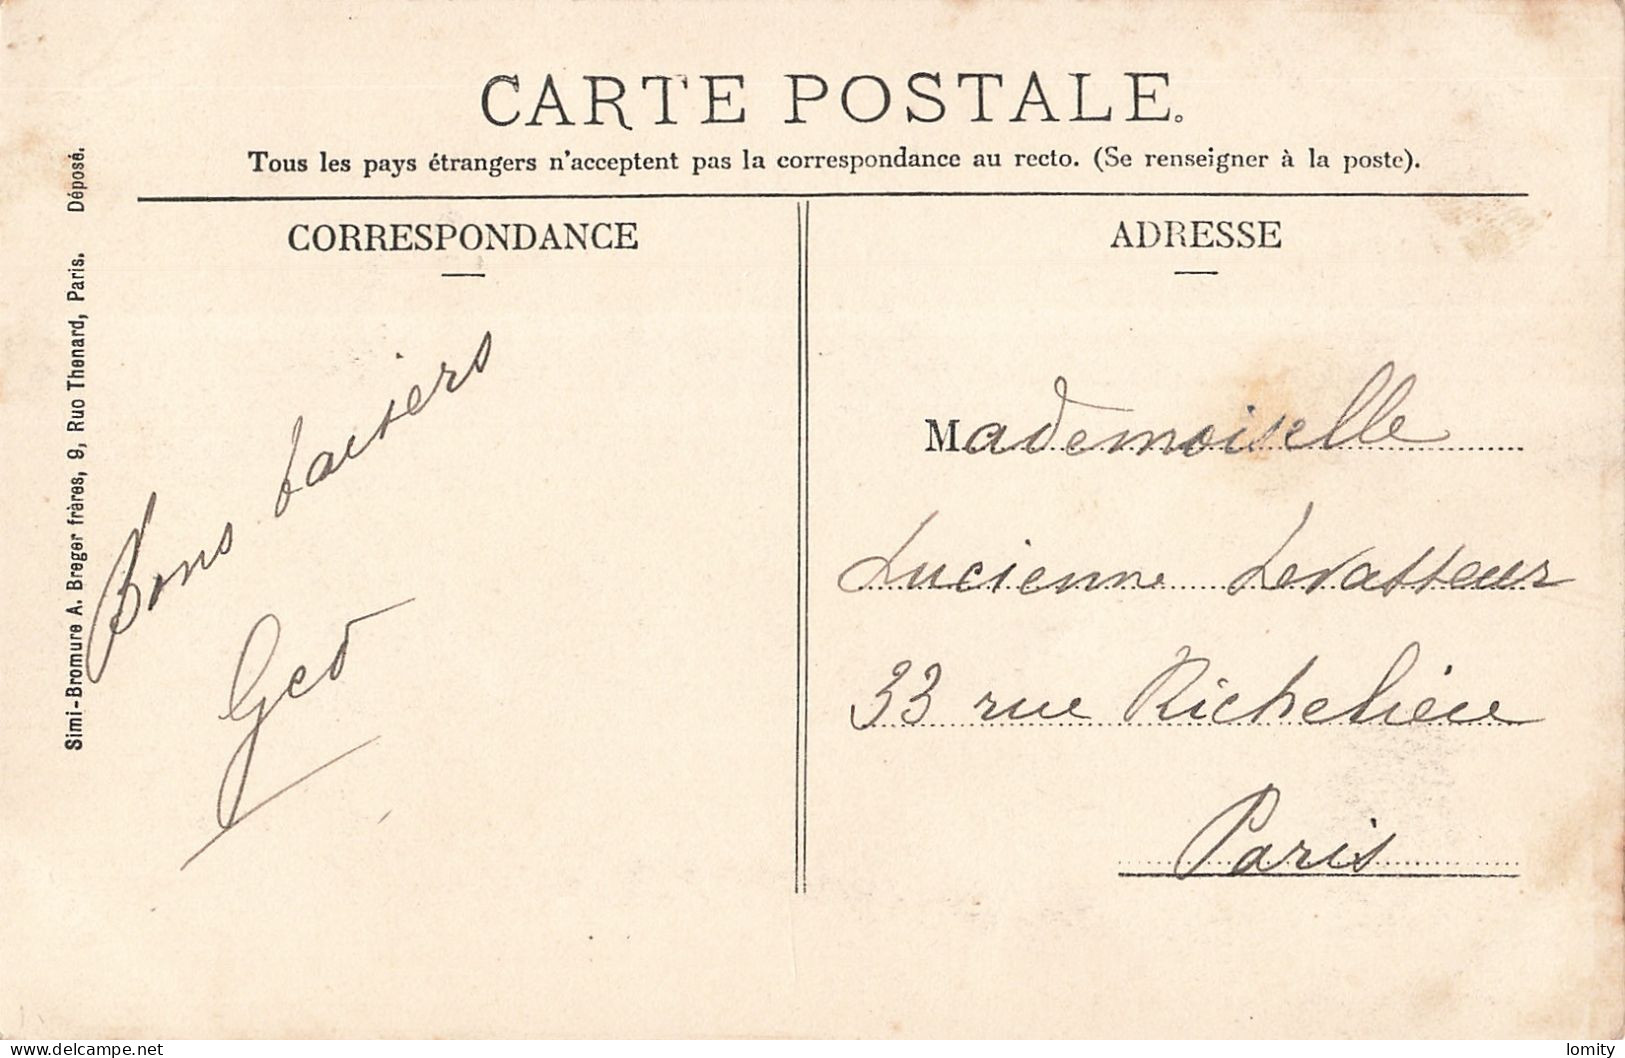 CARTE POSTALE.
Tous les pays étrangers n'acceptent pas la correspondance au recto. (Se renseigner à la poste).
Simi-Bromure A. Breger frères, 9, Rue Thenard, Paris. Déposé.
CORRESPONDANCE
Bons baisers
Geo
ADRESSE
Mademoiselle
Lucienne Levasseur
33 rue Richelieu
Paris
lomity